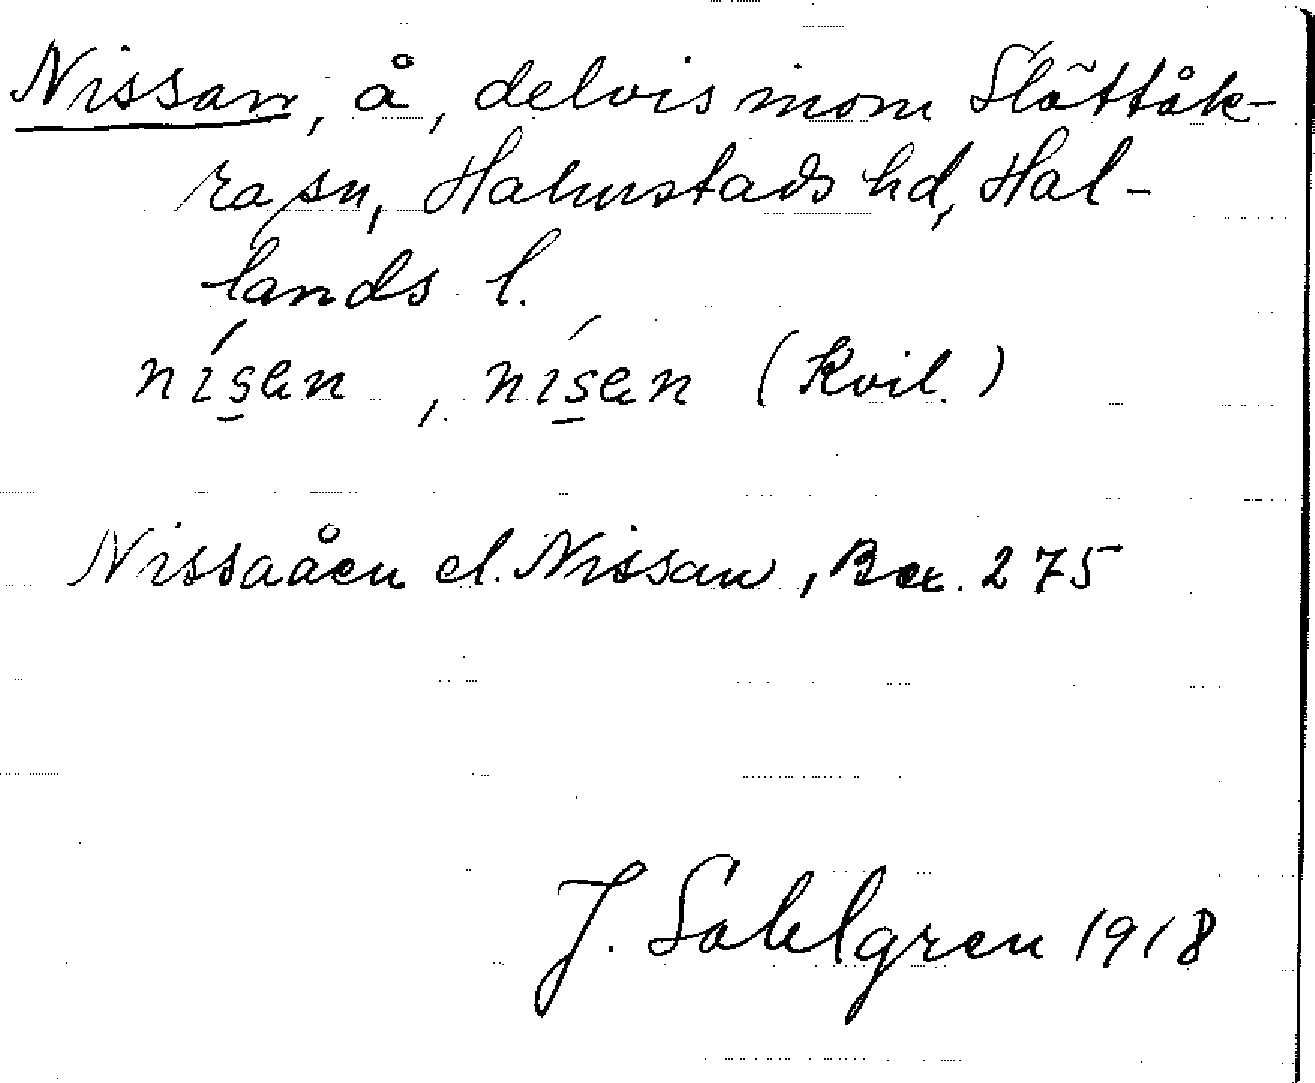 Nissan, å, delvis inom Slättåk-
ra sn, Halmstads hd, Hal-
lands l.
nísa̲n, nísa̲n (Kvil.)
Nissaåen el. Nissan, Bex. 275
J. Sahlgren 1918